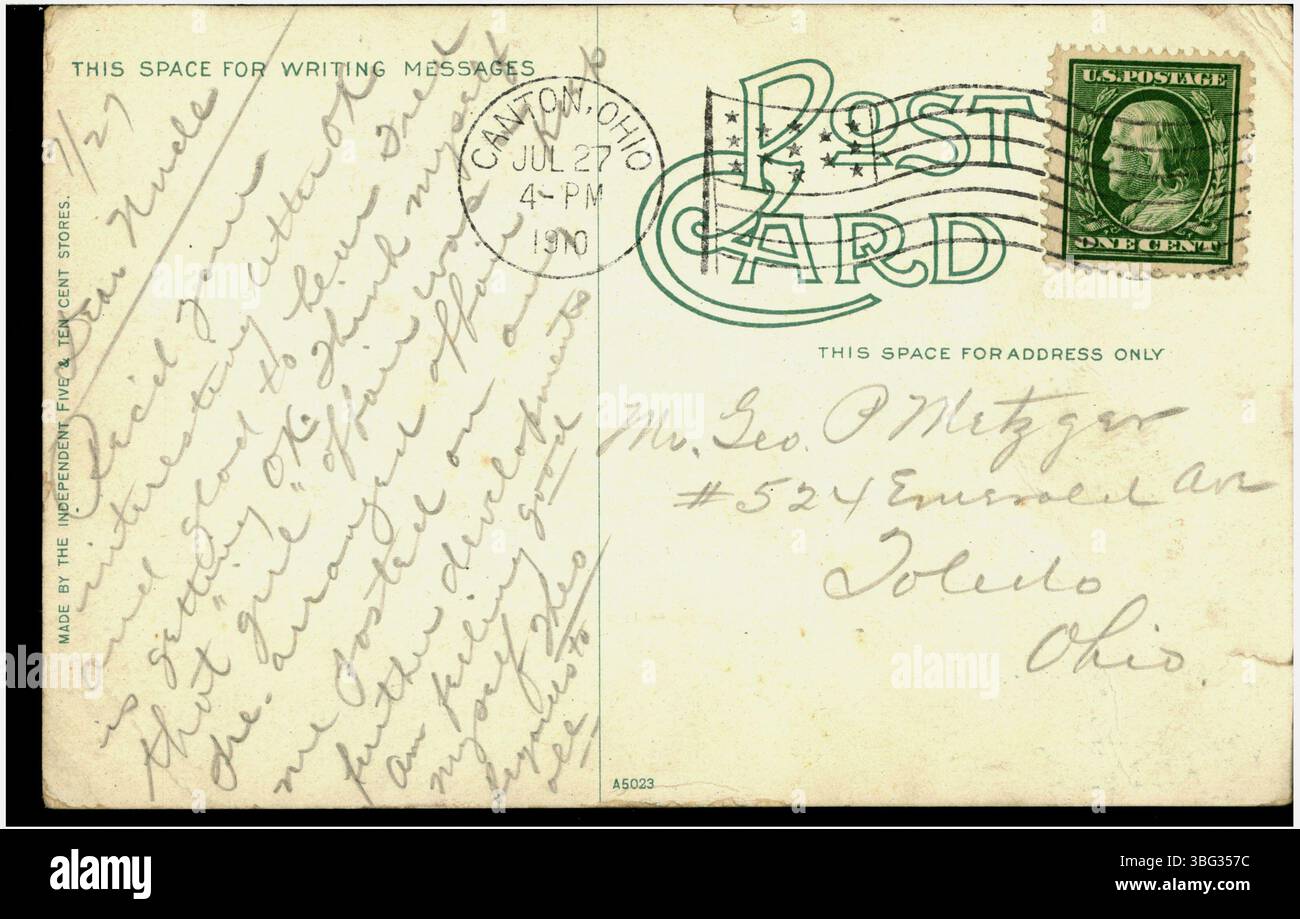 THIS SPACE FOR WRITING MESSAGES
7/27
Dear Uncle
Rec'd your
interesting letter ok
and glad to hear Fred
is getting OK. Think myself
that "girl" affair was
pre-arranged affair Keep
me posted on any
further developments
am feeling good
myself Theo
regards to
all
MADE BY THE INDEPENDENT FIVE & TEN CENT STORES.
CANTON, OHIO
JUL 27
4-PM
1910
POST
CARD
U.S. POSTAGE
ONE CENT
THIS SPACE FOR ADDRESS ONLY
Mr. Geo. P Metzger
#524 Emerald Ave
Toledo
Ohio
A5023
alamy
Image ID: 3BG357C
www.alamy.com